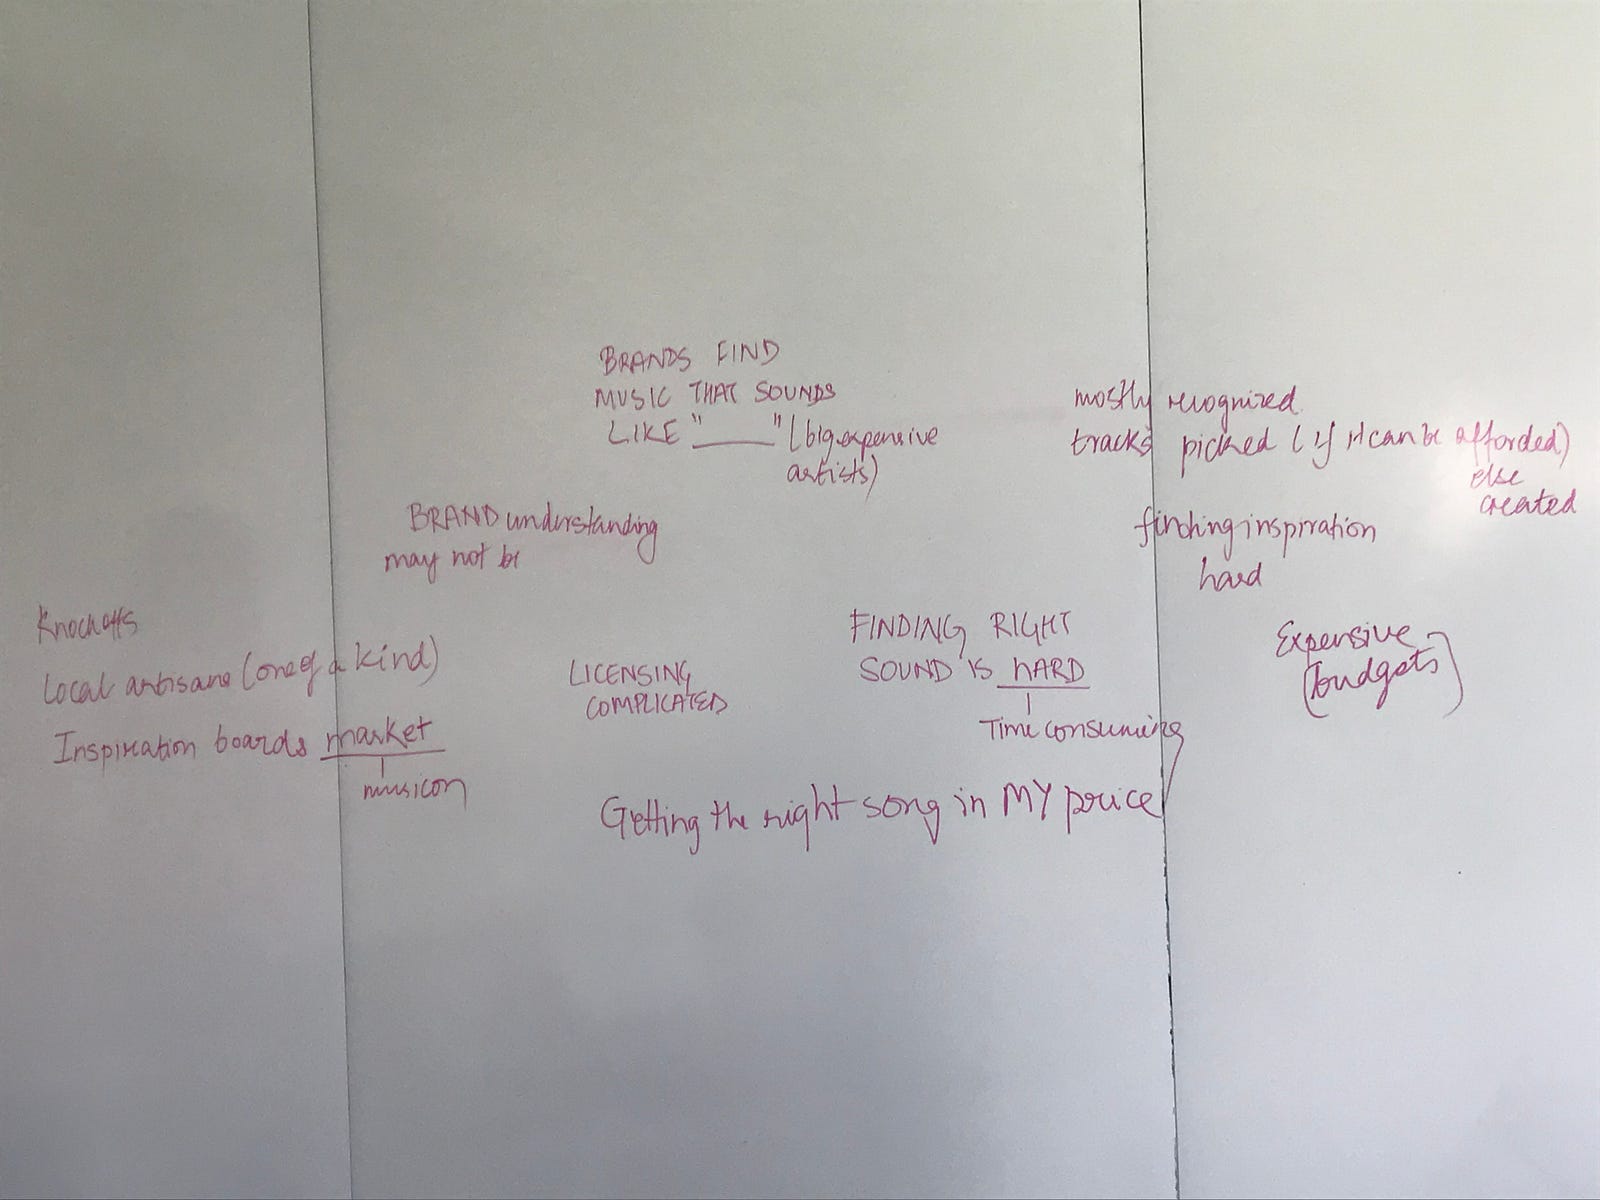 BRANDS FIND
MUSIC THAT SOUNDS
LIKE "_____" (big expensive
artists)
mostly recognized
tracks picked (if it can be afforded)
else
created
BRAND understanding
may not be
finding inspiration
hard
Knockoffs
Local artisans (one of a kind)
Inspiration boards market
musicon
LICENSING
COMPLICATED
FINDING RIGHT
SOUND IS HARD
Time consuming
Expensive
(budgets)
Getting the right song in MY price